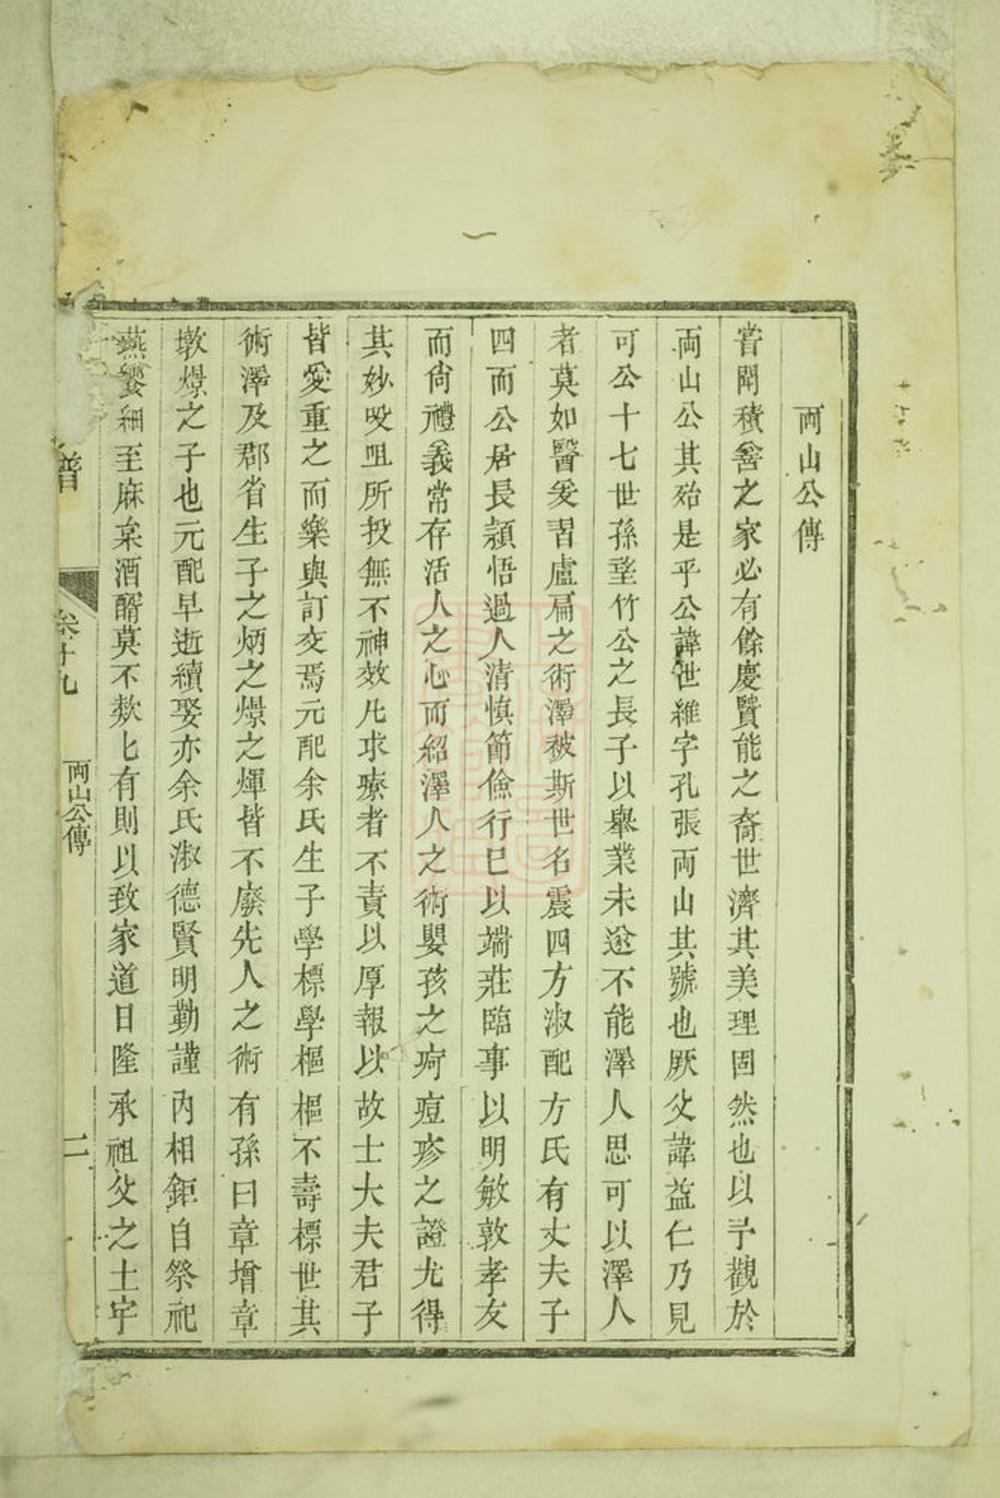 両山公傳
甞聞積善之家必有餘慶賢能之裔世濟其美理固然也以予觀於
両山公其殆是乎公諱世維字孔張両山其號也厥父諱益仁乃見
可公十七世孫堃竹公之長子以舉業未遂不能澤人思可以澤人
者莫如醫爰習盧扁之術澤被斯世名震四方淑配方氏有丈夫子
四而公居長頴悟過人清慎節儉行巳以端莊臨事以明敏敦孝友
而尙禮義常存活人之心而紹澤人之術嬰孩之疴痘疹之證尤得
其妙㕮咀所投無不神效凡求療者不責以厚報以故士大夫君子
皆愛重之而樂與訂交焉元配余氏生子學標學樞樞不壽標世其
術澤及郡省生子之炳之燝之煇皆不廢先人之術有孫曰章增章
墩燝之子也元配早逝續娶亦余氏淑德賢明勤謹內相鉅自祭祀
燕饗細至麻枲酒醑莫不欵匕有則以致家道日隆承祖父之土宇
譜
卷十九
両山公傳
二